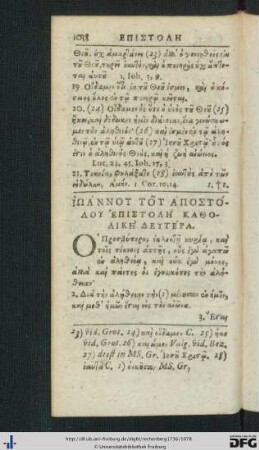 1078 ΕΠΙΣΤΟΛΗ
Θεῦ, ὐχ ἁμαρτάνει (23) ἀλλ' ὁ γεννηθεὶς ἐκ
τῦ Θεῦ, τηρεῖ ἑαυτὸν, καὶ ὁ πονηρὸς ὐχ ἅπ-
τεται αὐτῦ. 1. Joh. 3, 9.
19. Οἴδαμεν ὅτι ἐκ τῦ Θεῦ ἐσμεν, καὶ ὁ
κόσμος ὅλος ἐν τῷ πονηρῷ κεῖται.
20. (24) Οἴδαμεν δὲ ὅτι ὁ υἱὸς τῦ Θεῦ (25)
ἥκει, καὶ δέδωκεν ἡμῖν διάνοιαν, ἵνα γινώσκω-
μεν τὸν ἀληθινόν· (26) καὶ ἐσμὲν ἐν τῷ ἀλη-
θινῷ, ἐν τῷ υἱῷ αὐτῦ (27) Ἰησῦ Χριστῷ· ὗτός
ἐστιν ὁ ἀληθινὸς Θεὸς, καὶ ἡ ζωὴ αἰώνιος.
Luc. 24, 45. Joh. 17, 3.
21. Τεκνία, φυλάξατε (28) ἑαυτὰς ἀπὸ τῶν
εἰδώλων. Ἀμήν. 1 Cor. 10, 14.
ΙΩΑΝΝΟΥ ΤΟΥ ΑΠΟΣΤΟ-
ΛΟΥ ΕΠΙΣΤΟΛΗ ΚΑΘΟ-
ΛΙΚΗ ΔΕΥΤΕΡΑ.
Ο Πρεσβύτερος ἐκλεκτῇ κυρίᾳ, καὶ
τοῖς τέκνοις αὐτῆς, ὓς ἐγὼ ἀγαπῶ
ἐν ἀληθείᾳ, καὶ ὐκ ἐγὼ μόνος,
ἀλλὰ καὶ πάντες οἱ ἐγνωκότες τὴν ἀλή-
θειαν·
2. Διὰ τὴν ἀλήθειαν τὴν (1) μένυσαν ἐν ἡμῖν,
καὶ μεθ' ἡμῶν ἔσται εἰς τὸν αἰῶνα.
3. Ἔσται
23) vid. Grot. 24) καὶ οἴδαμεν C. 25) ἧκε
vid. Grot. 26) Vulg. vid. Bez.
27) deest in MS. Gr. Ἰησῦ Χριστῷ. 28)
ἑαυτὰ C. 1) MS. Gr.
http://diud.ub.uni-freiburg.de/diglit/rechenberg1736/1078
© Universitätsbibliothek Freiburg
gefördert durch die
DFG